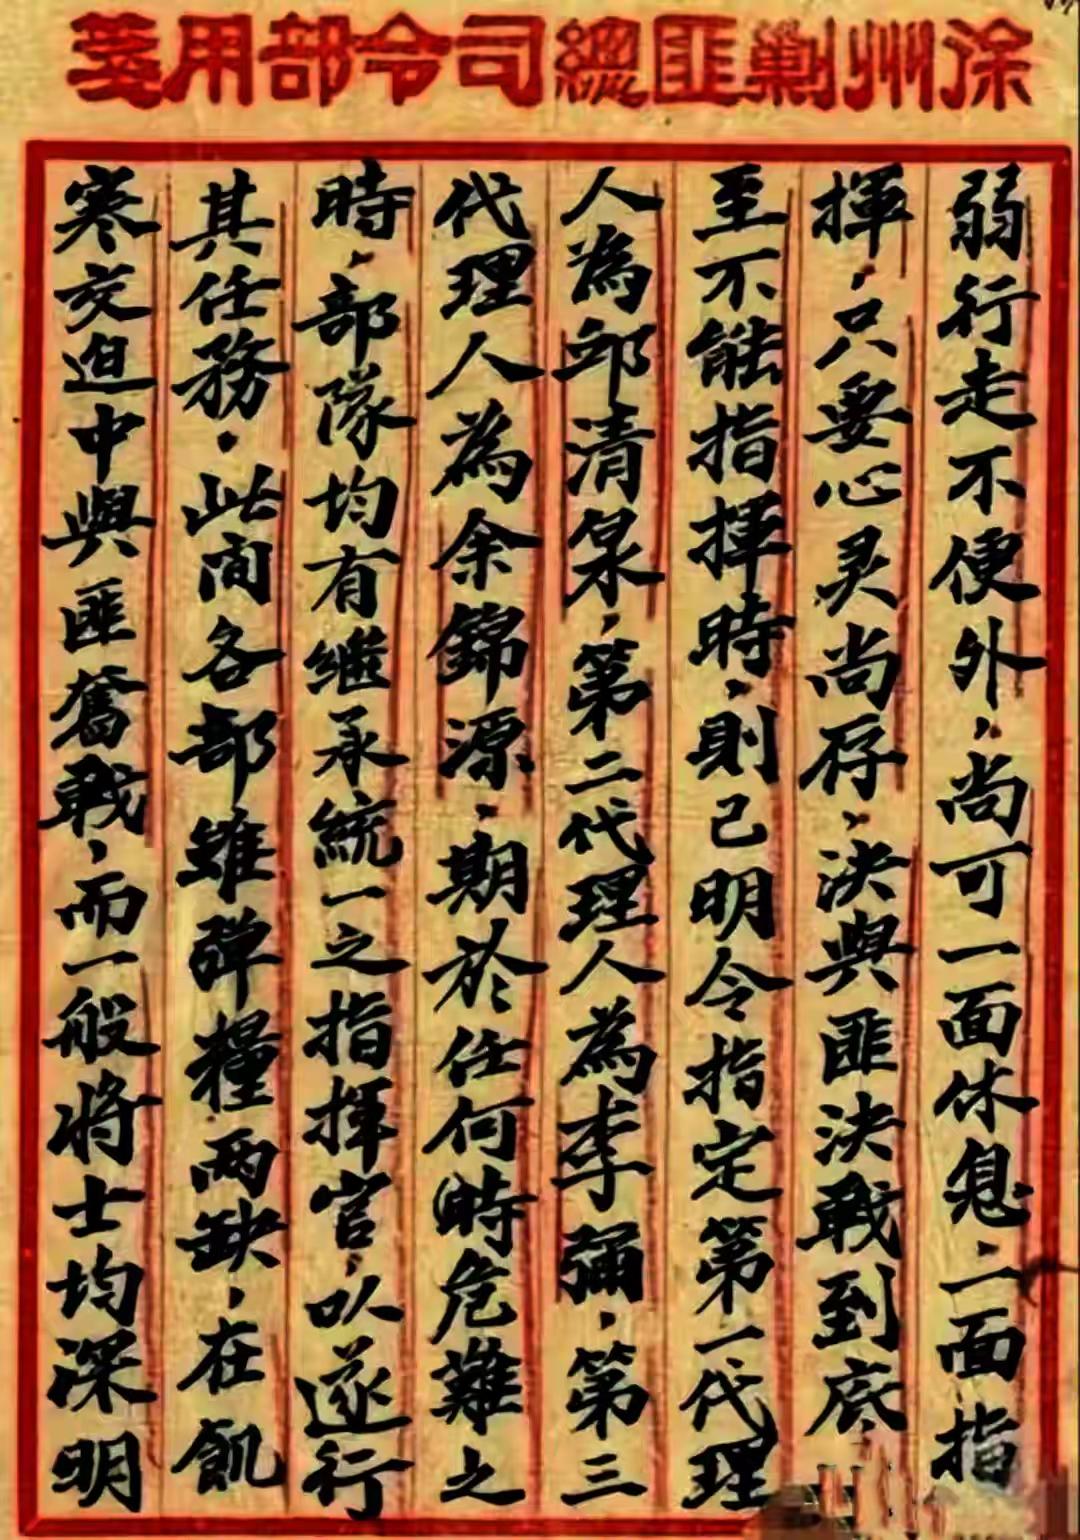 徐州剿匪總司令部用箋
弱行走不便外，尚可一面休息，一面指
揮，只要心灵尚存，決與匪決戰到底，
至不能指揮時，則已明令指定第一代理
人為邱清泉，第二代理人為李彌，第三
代理人為余錦源，期於任何時危難之
時，部隊均有继承統一之指揮官，以遂行
其任務，此间各部雖弹糧兩缺，在飢
寒交迫中與匪奮戰，而一般將士均深明